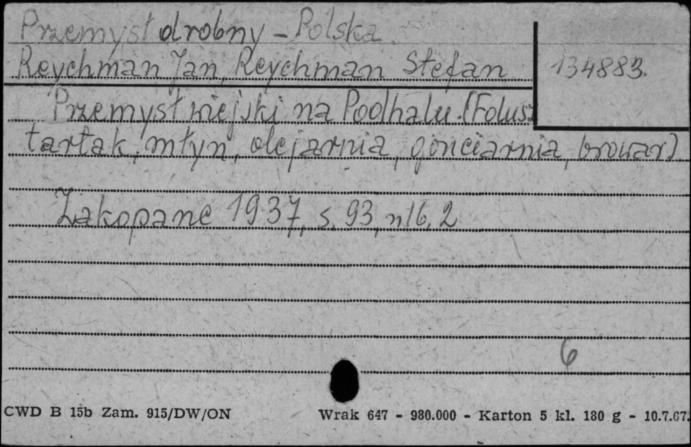 Przemysł drobny - Polska.
Reychman Jan, Reychman Stefan
134883.
Przemysł wiejski na Podhalu. (Folusz
tartak, młyn, olejarnia, gonciarnia, browar)
Zakopane 1937, s. 93, nlb. 2
6
CWD B 15b Zam. 915/DW/ON Wrak 647 - 980.000 - Karton 5 kl. 180 g - 10.7.67.